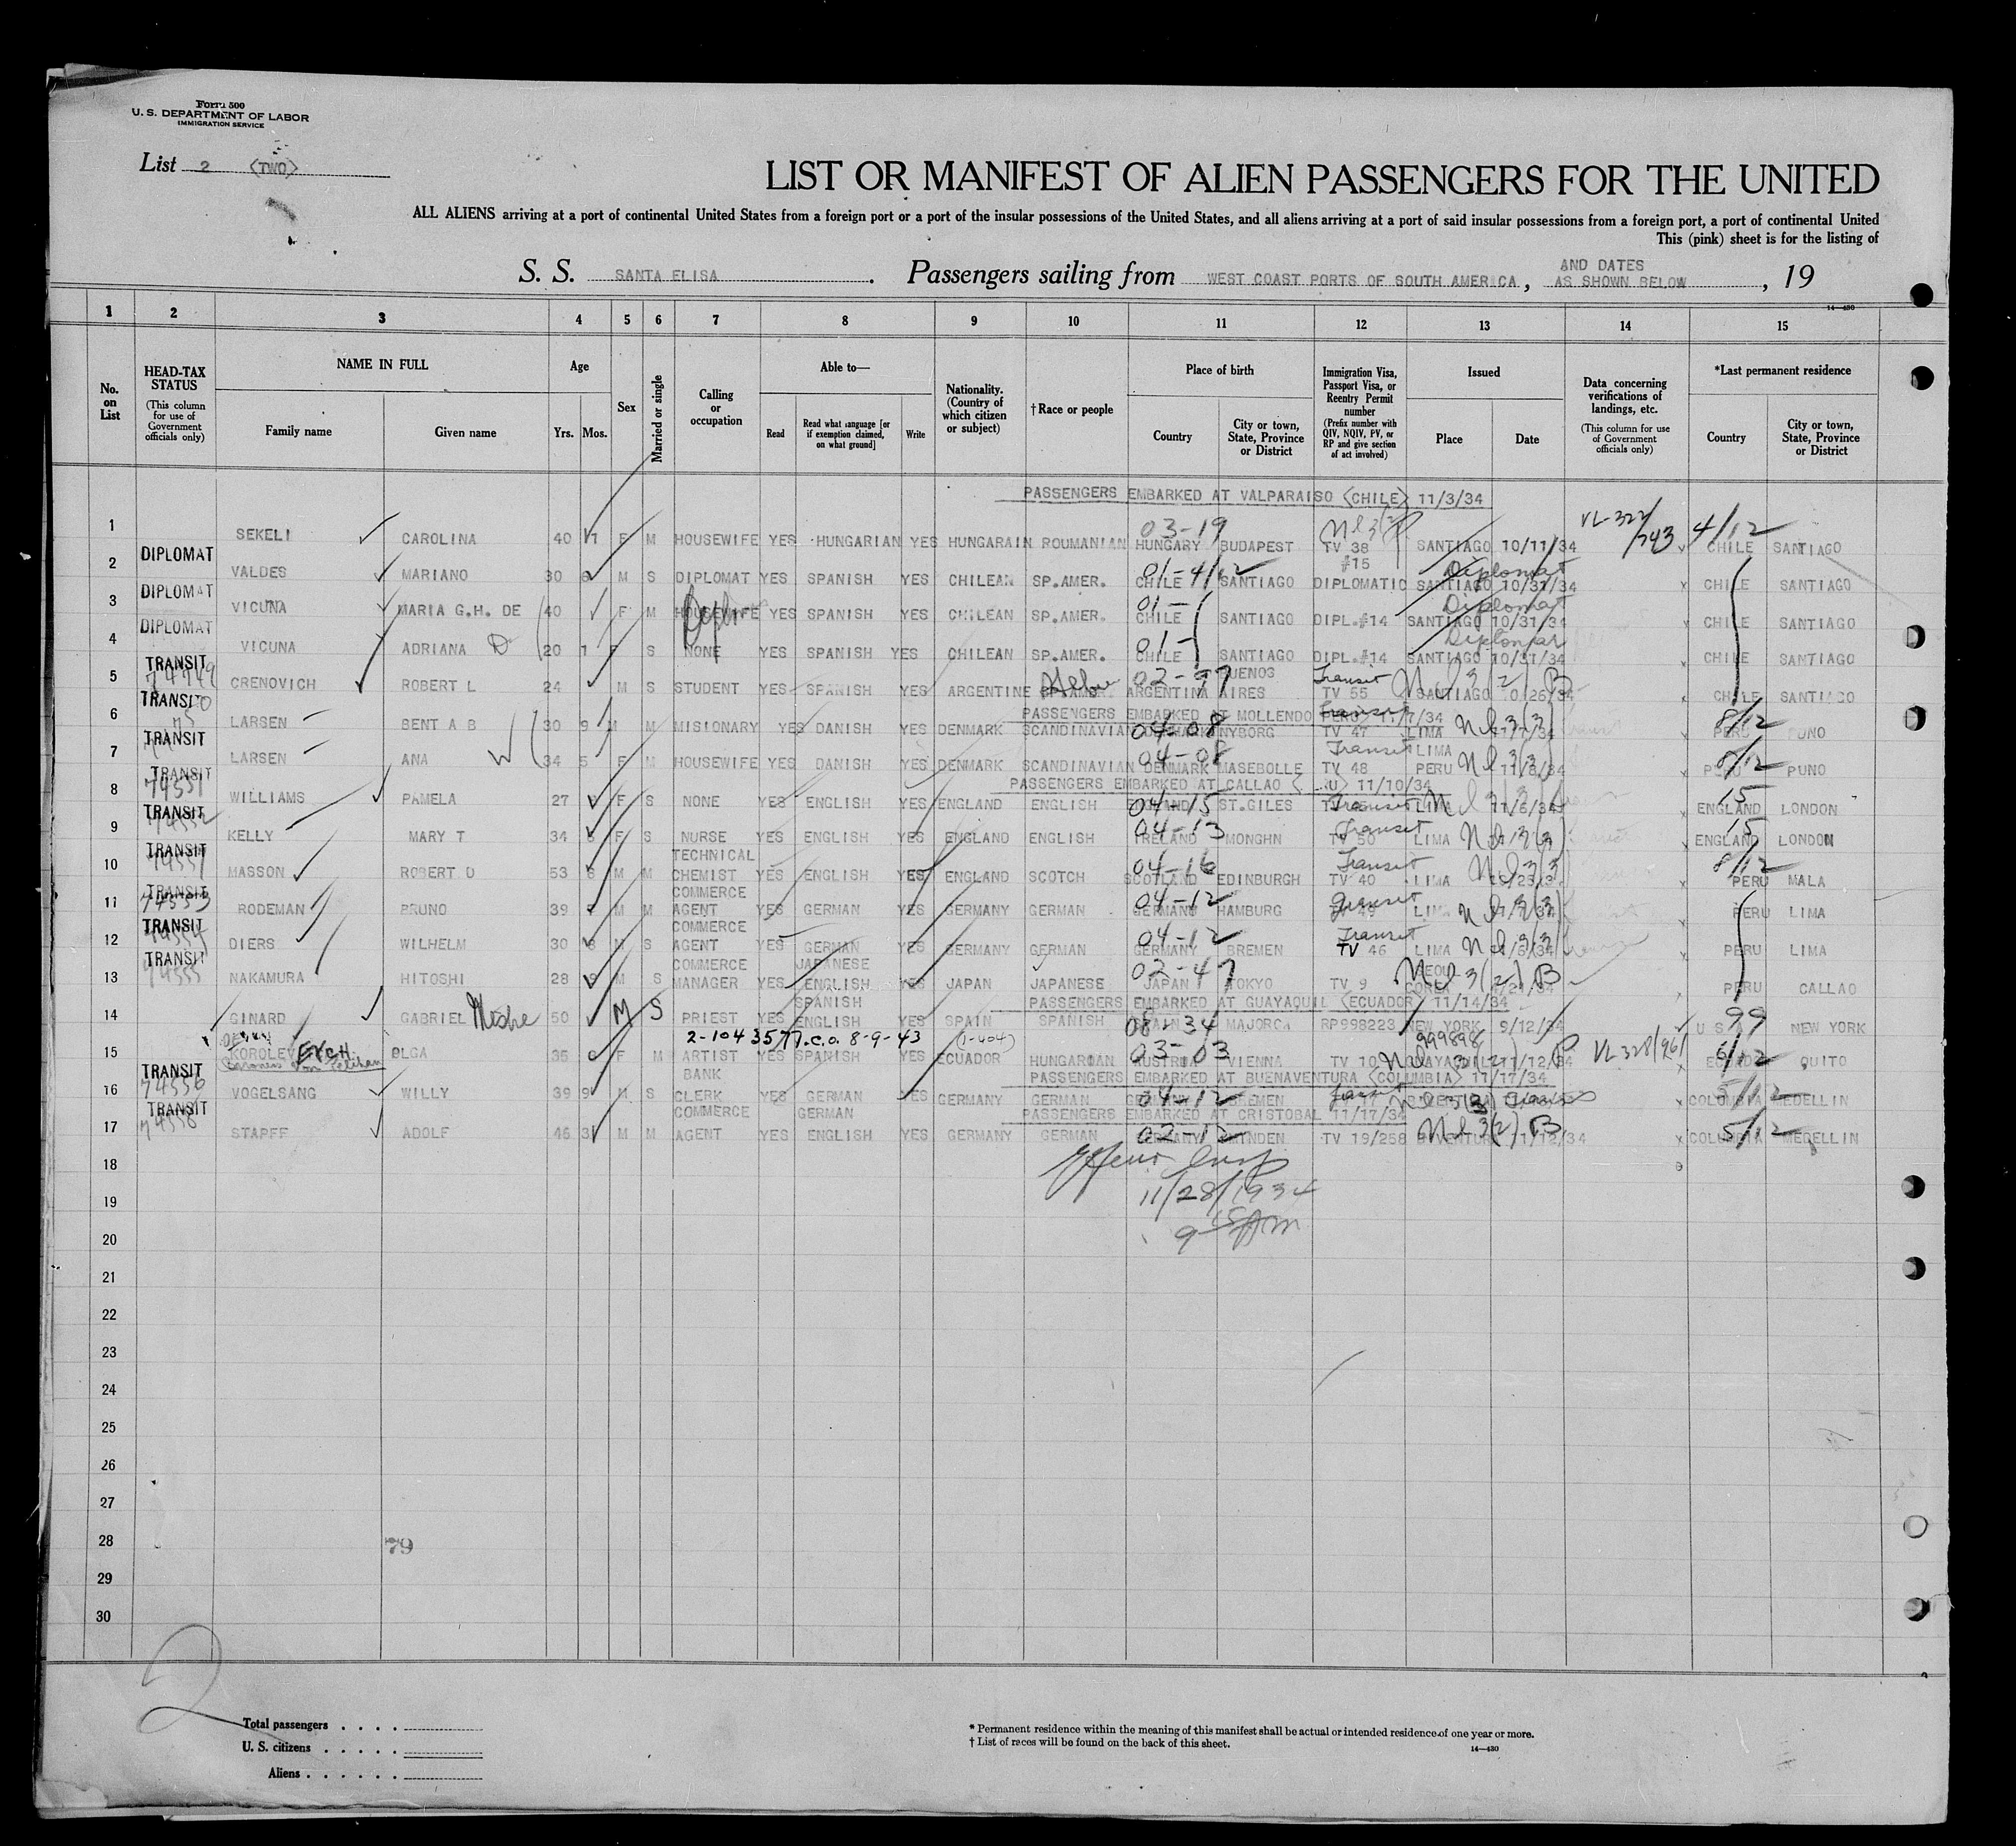 Form 500
U. S. DEPARTMENT OF LABOR
IMMIGRATION SERVICE
List 2 (TWO)
LIST OR MANIFEST OF ALIEN PASSENGERS FOR THE UNITED
ALL ALIENS arriving at a port of continental United States from a foreign port or a port of the insular possessions of the United States, and all aliens arriving at a port of said insular possessions from a foreign port, a port of continental United
This (pink) sheet is for the listing of
S. S. SANTA ELISA. Passengers sailing from WEST COAST PORTS OF SOUTH AMERICA, AND DATES AS SHOWN BELOW, 19
14—430
1 2 3 4 5 6 7 8 9 10 11 12 13 14 15
No. on List
HEAD-TAX STATUS (This column for use of Government officials only)
NAME IN FULL
Family name Given name
Age
Yrs. Mos.
Sex
Married or single
Calling or occupation
Able to—
Read
Read what language [or if exemption claimed, on what ground]
Write
Nationality. (Country of which citizen or subject)
†Race or people
Place of birth
Country
City or town, State, Province or District
Immigration Visa, Passport Visa, or Reentry Permit number (Prefix number with QIV, NQIV, PV, or RP and give section of act involved)
Issued
Place Date
Data concerning verifications of landings, etc. (This column for use of Government officials only)
*Last permanent residence
Country
City or town, State, Province or District
PASSENGERS EMBARKED AT VALPARAISO (CHILE) 11/3/34
03-19 VL-322/743 4/12
1 SEKELI CAROLINA 40 F M HOUSEWIFE YES HUNGARIAN YES HUNGARAIN ROUMANIAN HUNGARY BUDAPEST TV 38 SANTIAGO 10/11/34 CHILE SANTIAGO
DIPLOMAT 01-4/12 #15 Diplomat
2 VALDES MARIANO 30 M S DIPLOMAT YES SPANISH YES CHILEAN SP.AMER. CHILE SANTIAGO DIPLOMATIC SANTIAGO 10/31/34 CHILE SANTIAGO
DIPLOMAT 01- Diplomat
3 VICUNA MARIA G.H. DE 40 F M HOUSEWIFE YES SPANISH YES CHILEAN SP.AMER. CHILE SANTIAGO DIPL.#14 SANTIAGO 10/31/34 CHILE SANTIAGO
DIPLOMAT 01- Diplomat
4 VICUNA ADRIANA D 20 1 F S NONE YES SPANISH YES CHILEAN SP.AMER. CHILE SANTIAGO DIPL.#14 SANTIAGO 10/31/34 CHILE SANTIAGO
TRANSIT 02-97 BUENOS Transit
5 CRENOVICH ROBERT L 24 M S STUDENT YES SPANISH YES ARGENTINE ARGENTINA AIRES TV 55 SANTIAGO CHILE SANTIAGO
PASSENGERS EMBARKED AT MOLLENDO 11/7/34
TRANSIT 04-08 8/12
6 LARSEN BENT A B 30 9 M M MISIONARY YES DANISH YES DENMARK SCANDINAVIAN NYBORG TV 47 LIMA PERU PUNO
TRANSIT 04-08 Transit LIMA 8/12
7 LARSEN ANA W 34 5 F M HOUSEWIFE YES DANISH YES DENMARK SCANDINAVIAN DENMARK MASEBOLLE TV 48 PERU PERU PUNO
PASSENGERS EMBARKED AT CALLAO 11/10/34
TRANSIT 74551 04-15 Transit 15
8 WILLIAMS PAMELA 27 F S NONE YES ENGLISH YES ENGLAND ENGLISH ST.GILES ENGLAND LONDON
TRANSIT 74552 04-13 Transit 15
9 KELLY MARY T 34 F S NURSE YES ENGLISH YES ENGLAND ENGLISH IRELAND MONGHN TV 50 LIMA ENGLAND LONDON
TRANSIT 04-16 Transit 8/12
10 MASSON ROBERT D 53 M M TECHNICAL CHEMIST YES ENGLISH YES ENGLAND SCOTCH SCOTLAND EDINBURGH TV 40 LIMA PERU MALA
TRANSIT 74553 04-12 Transit
11 RODEMAN BRUNO 39 M M COMMERCE AGENT YES GERMAN YES GERMANY GERMAN GERMANY HAMBURG PERU LIMA
TRANSIT 74554 04-12 Transit
12 DIERS WILHELM 30 M S COMMERCE AGENT YES GERMAN YES GERMANY GERMAN GERMANY BREMEN TV 46 LIMA PERU LIMA
TRANSIT 74555 02-47
13 NAKAMURA HITOSHI 28 M S COMMERCE MANAGER YES JAPANESE ENGLISH YES JAPAN JAPANESE JAPAN TOKYO TV 9 PERU CALLAO
PASSENGERS EMBARKED AT GUAYAQUIL (ECUADOR) 11/14/34
14 GINARD GABRIEL 50 M S PRIEST YES SPANISH ENGLISH YES SPAIN SPANISH SPAIN MAJORCA RP998223 NEW YORK 9/12/34 U S A NEW YORK
08-34 99
2-104357 T.C.O. 8-9-43 (1-404) 999898
15 KOROLEV OLGA 35 F M ARTIST YES SPANISH YES ECUADOR HUNGARIAN AUSTRIA VIENNA TV 10 GUAYAQUIL 11/12/34 VL-328/961 ECUADOR QUITO
03-03 6/12
PASSENGERS EMBARKED AT BUENAVENTURA (COLUMBIA) 11/17/34
TRANSIT 74556 04-12 5/12
16 VOGELSANG WILLY 39 9 M S BANK CLERK YES GERMAN YES GERMANY GERMAN COLUMBIA MEDELLIN
PASSENGERS EMBARKED AT CRISTOBAL 11/17/34
TRANSIT 74558 02-12 5/12
17 STAPFF ADOLF 46 3 M M COMMERCE AGENT YES GERMAN ENGLISH YES GERMANY GERMAN GERMANY MINDEN TV 19/258 COLUMBIA MEDELLIN
18
11/28/1934
19
20
21
22
23
24
25
26
27
28 79
29
30
2
Total passengers
U. S. citizens
Aliens
* Permanent residence within the meaning of this manifest shall be actual or intended residence of one year or more.
† List of races will be found on the back of this sheet.
14—430